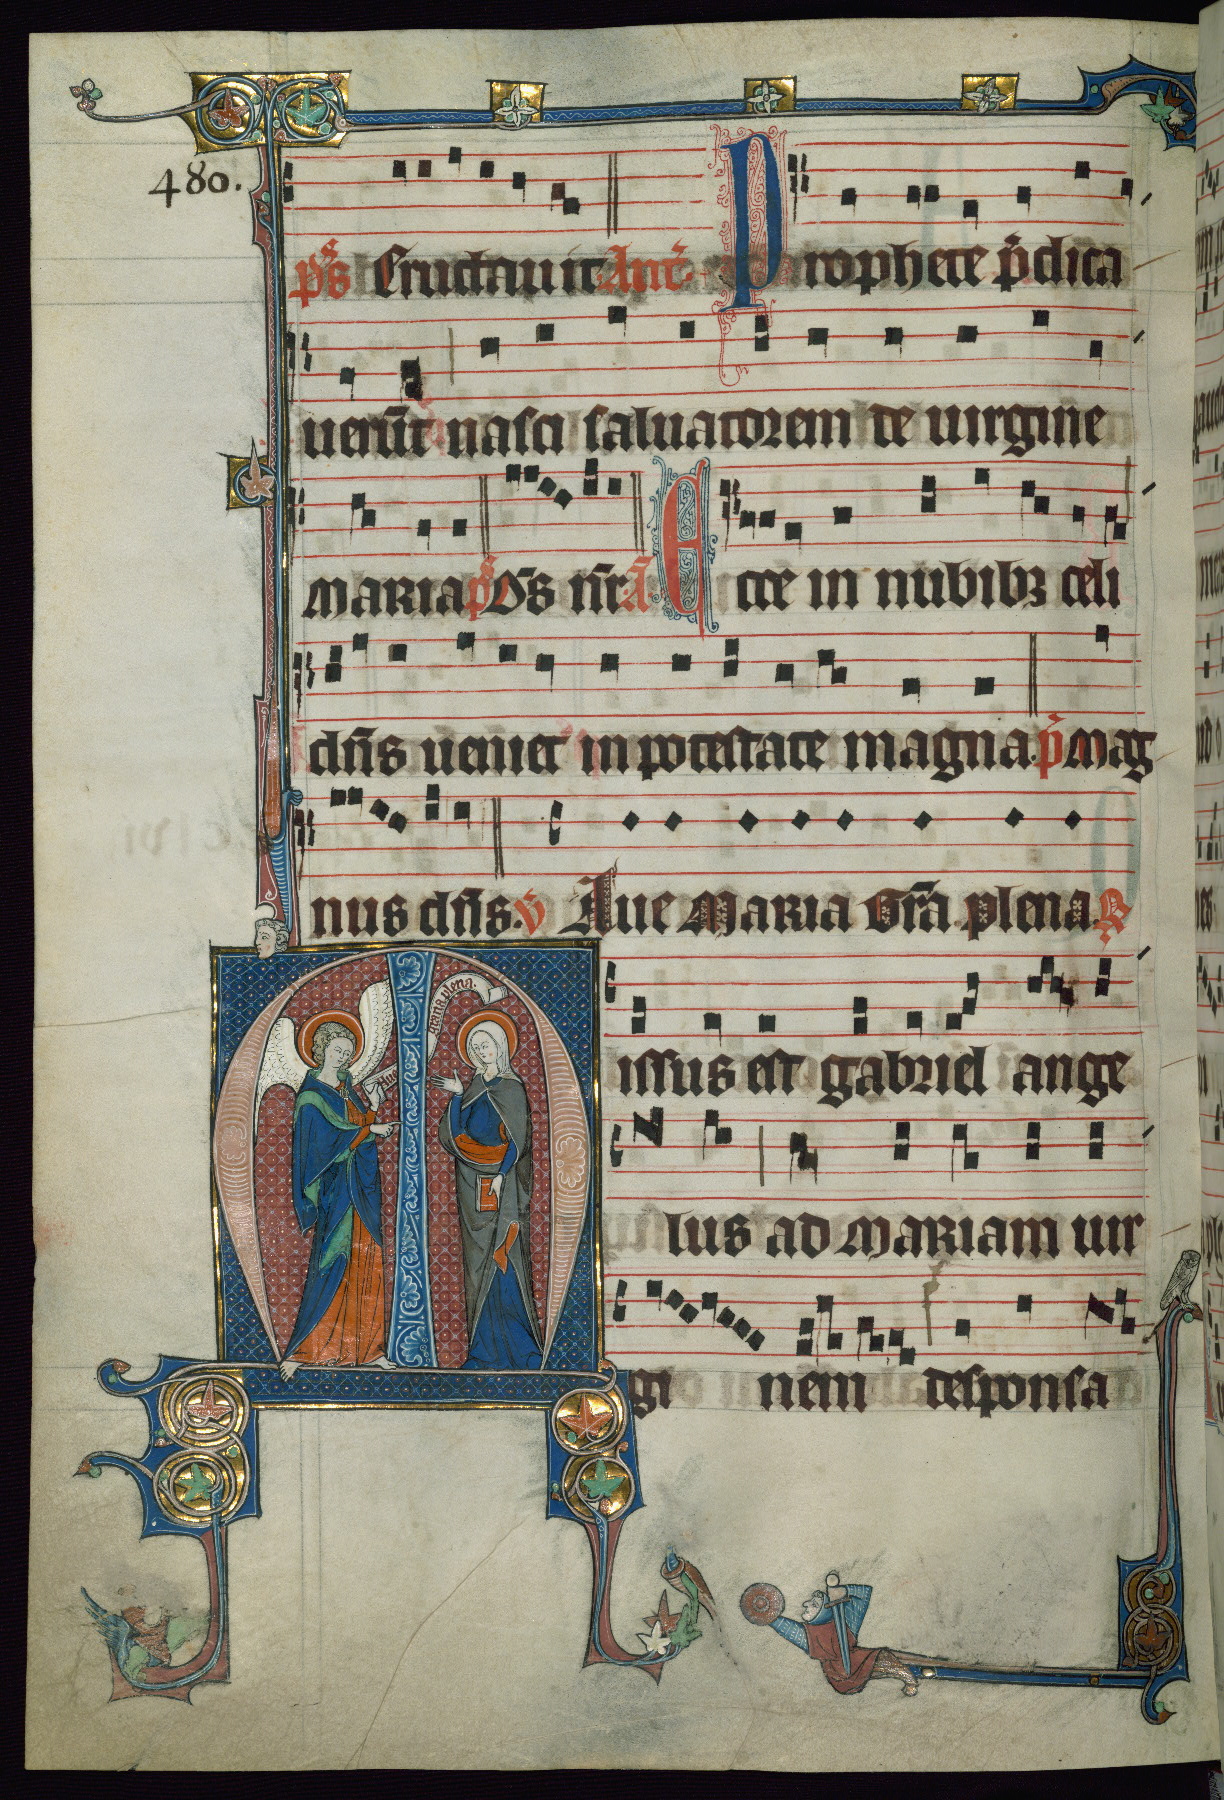 480.
p̄s Eructauit. Ant̄. Prophete p̄dica
uerūt nasci saluatorem de uirgine
Maria p̄s Os̄ nr̄. A Ecce in nubibꝫ celi
dn̄s ueniet in potestate magna. p̄ Mag
nus dn̄s. v̄ Aue Maria Gr̄a plena. R̄
Missus est gabriel ange
lus ad Mariam uir
gi nem desponsa
Aue
gracia plena.